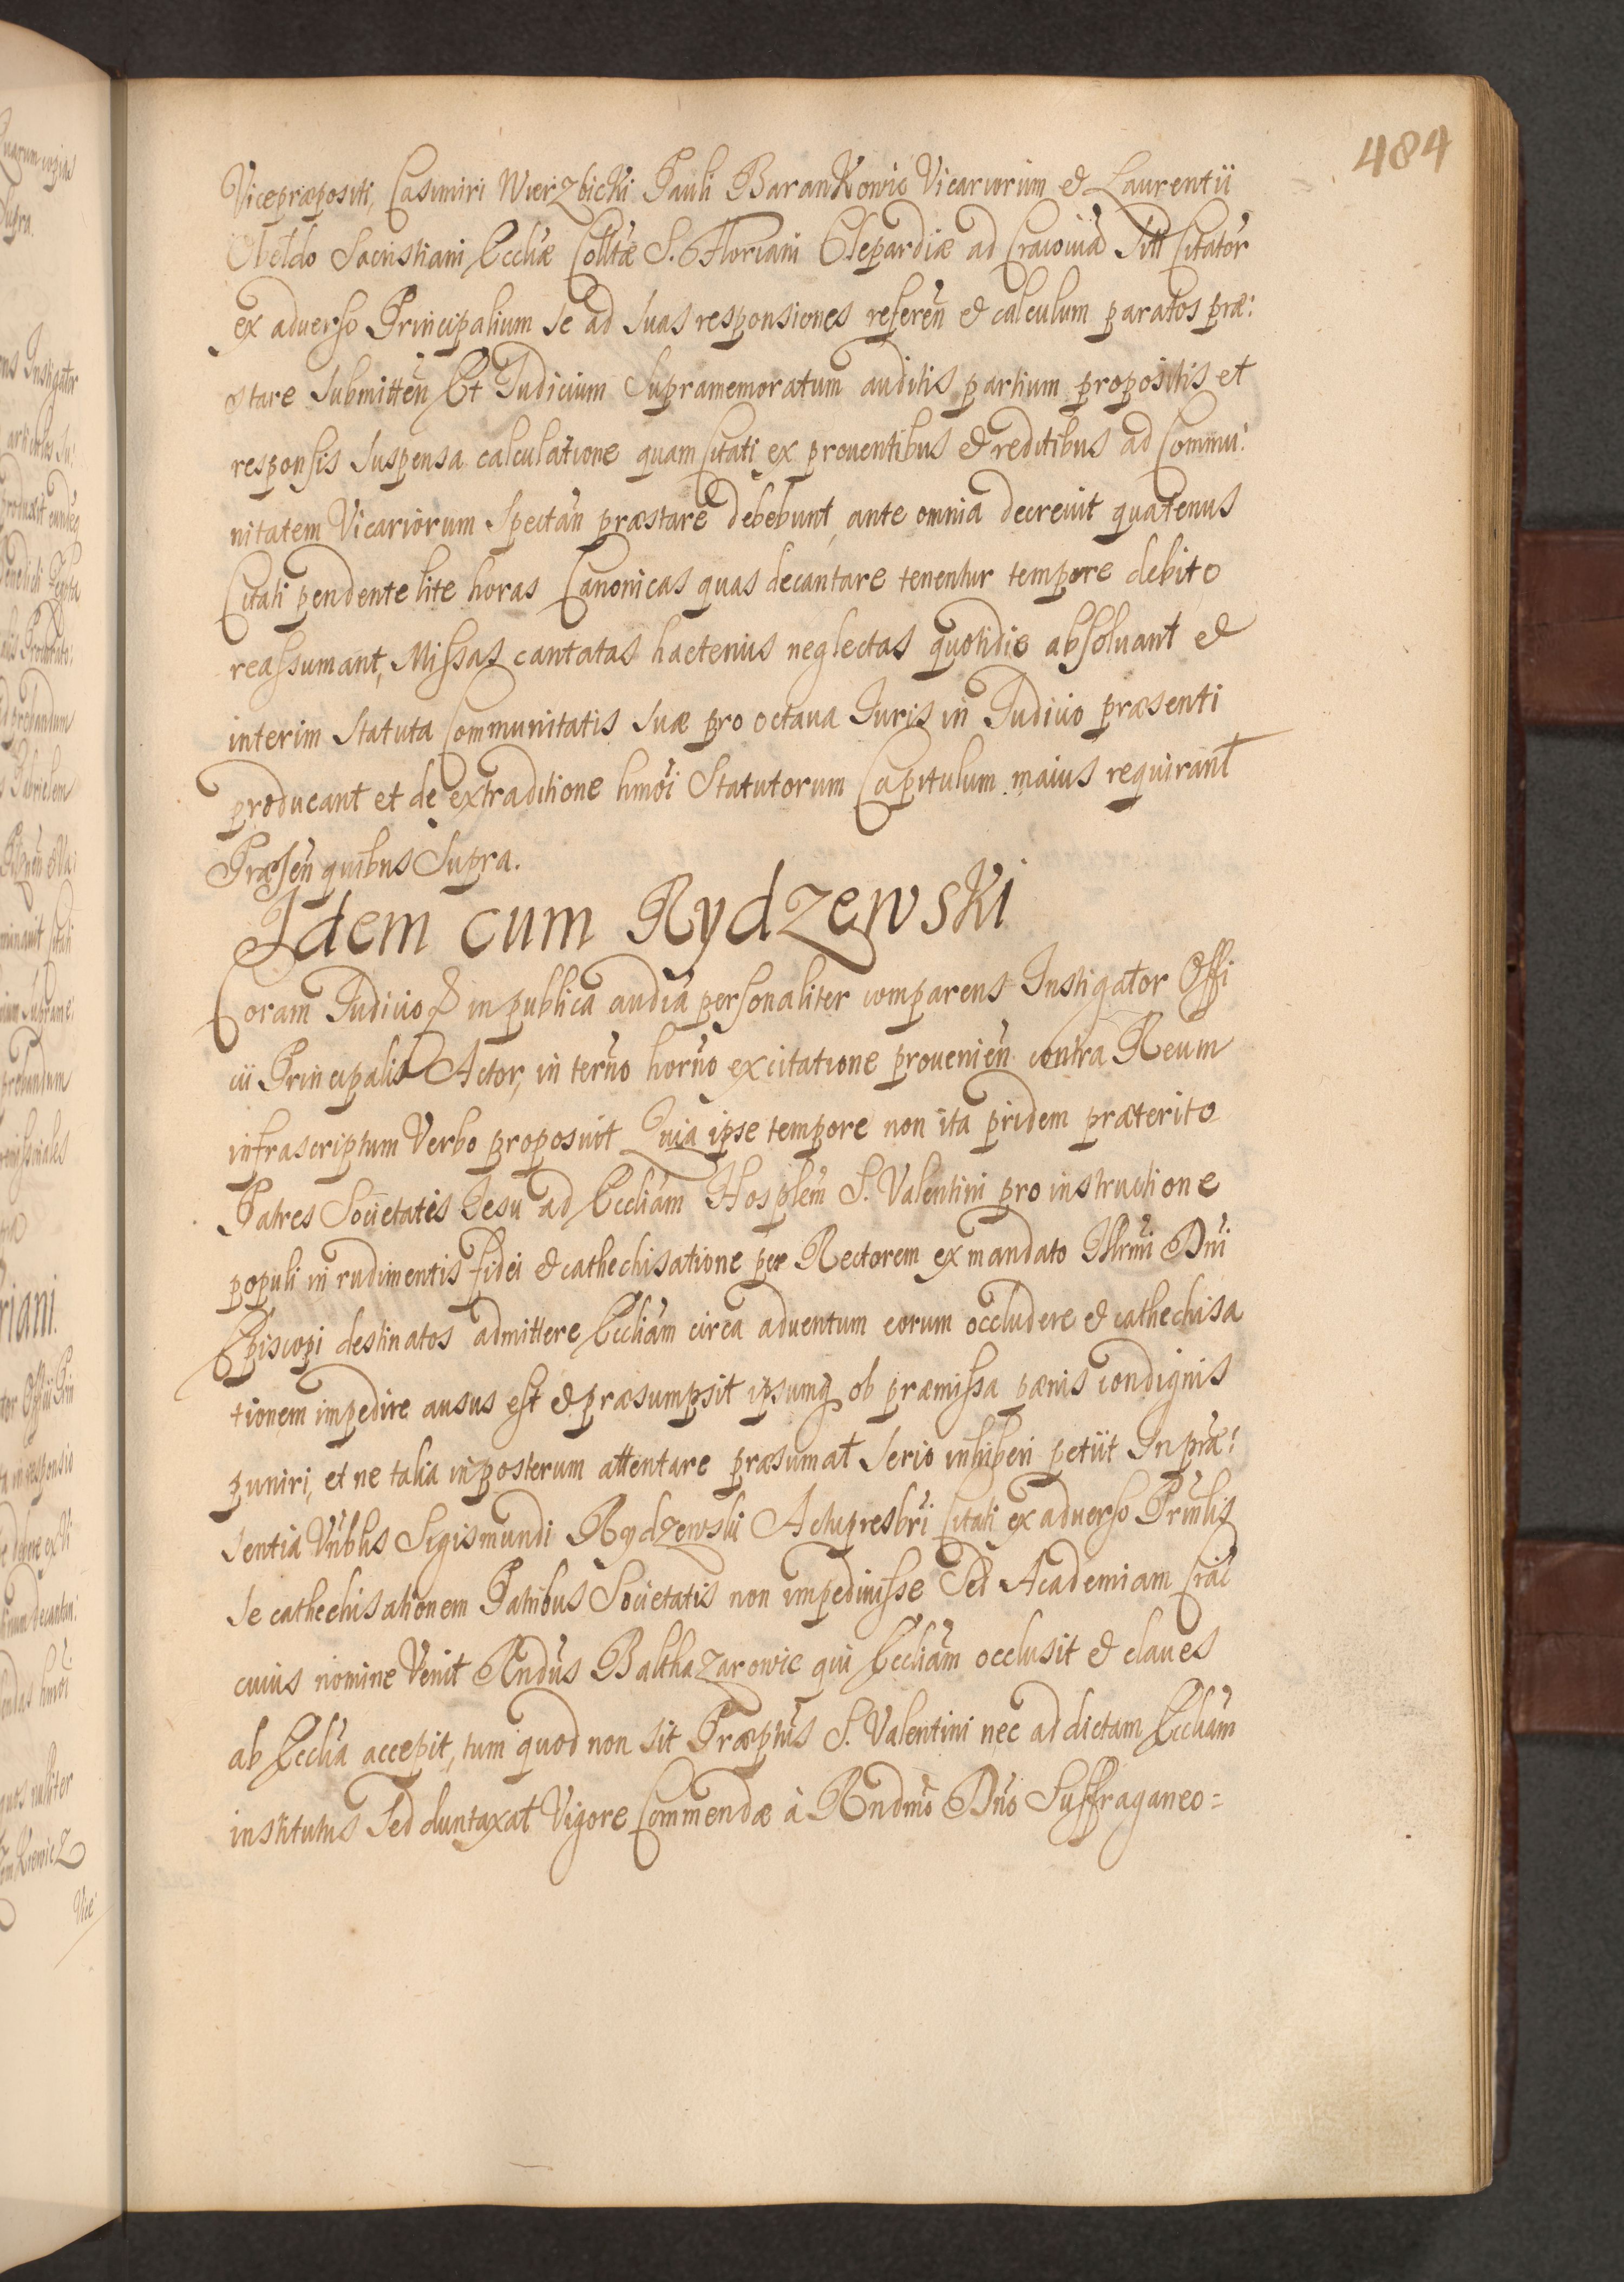 484
Vicepræpositi, Casimiri Wierzbicki Pauli Barankowic Vicariorum et Laurentii
Obeldo Sacristiani Eccliæ Colltæ S. Floriani Clepardiæ ad Cracoviā Sitt Citator
ex adverso Principalium se ad suas responsiones referen̄ et calculum paratos præ:
stare submitten̄ Et Judicium supramemoratum auditis partium propositis et
responsis suspensa calculatione quam Citati ex proventibus et reditibus ad Commu:
nitatem Vicariorum spectan̄ præstare debebunt, ante omnia decrevit quatenus
Citati pendente lite horas Canonicas quas decantare tenentur tempore debito
reassumant, Missas cantatas hactenus neglectas quotidie absolvant et
interim statuta Communitatis suæ pro octava Juris in Judicio præsenti
producant et de extraditione hmōi Statutorum Capitulum maius requirant
Præsen̄ quibus supra.
Idem cum Rydzewski
Coram Judicio et in publica audiā personaliter comparens Instigator Offi
cii Principalis Actor, in term̄o hor̄no excitatione provenien̄ contra Reum
infrascriptum Verbo proposuit Quia ipse tempore non ita pridem præterito
Patres Societatis Jesu ad Eccliam Hosplem S. Valentini pro instructione
populi in rudimentis fidei et cathechisatione per Rectorem ex mandato Illrmi Dni
Episcopi destinatos admittere Eccliam circa adventum eorum occludere et cathechisa
tionem impedire ausus est et præsumpsit ipsumq ob præmissa pænis condignis
puniri, et ne talia inposterum attentare præsumat serio inhiberi petiit In præ:
sentia Vnblis Sigismundi Rydzewski Actupresbri Citati ex adverso Prinlis
se cathechisationem Patribus Societatis non impedivisse Sed Academiam Crac
cuius nomine Venit Rndus Balthazarowic qui Eccliam occlusit et claves
ab Ecclia accepit, tum quod non sit Præptus S. Valentini nec ad dictam Eccliam
institutus Sed duntaxat Vigore Commendæ à Rndmo Dno Suffraganeo=